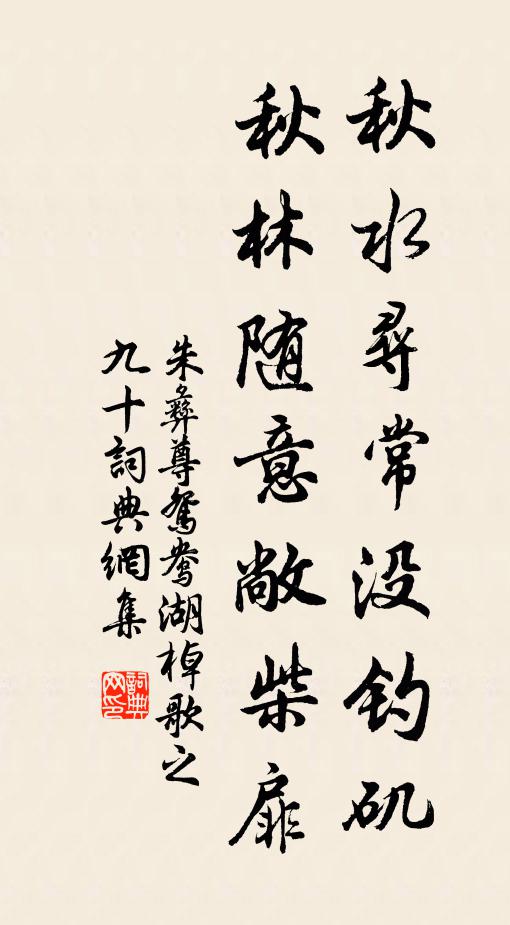 秋水尋常没钓矶
秋林随意敞柴扉
朱彝尊鴛鴦湖棹歌之
九十詞典網集
詞典网印